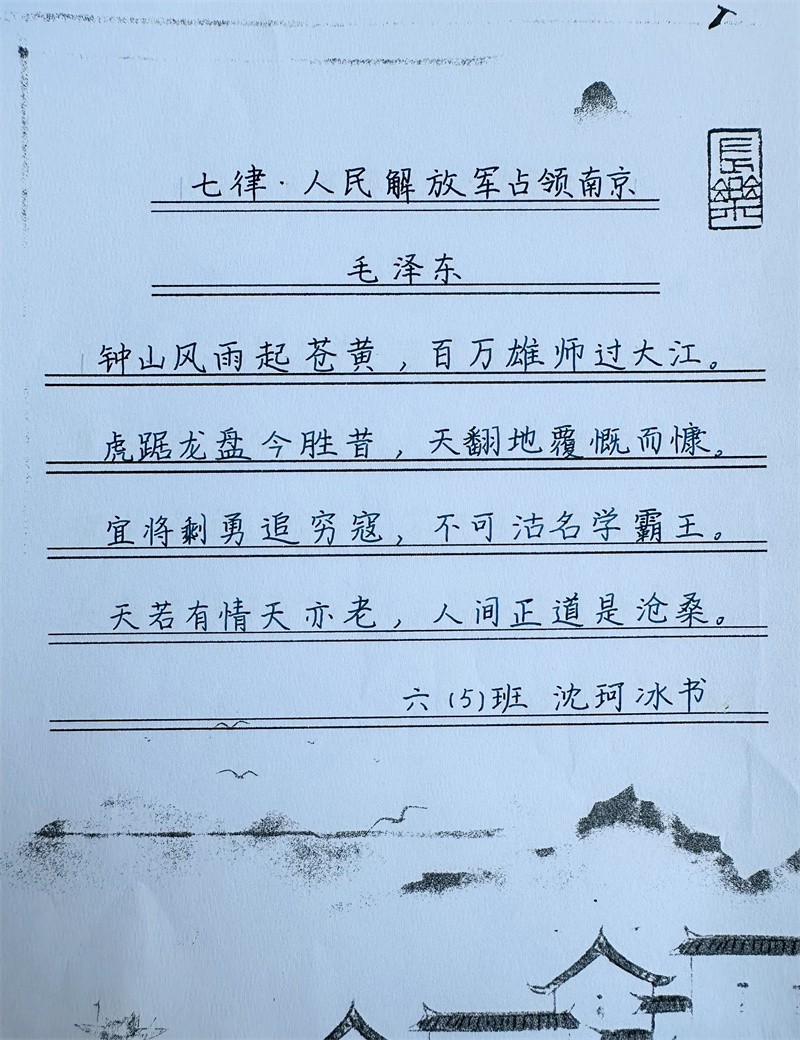 七律·人民解放军占领南京
毛泽东
钟山风雨起苍黄，百万雄师过大江。
虎踞龙盘今胜昔，天翻地覆慨而慷。
宜将剩勇追穷寇，不可沽名学霸王。
天若有情天亦老，人间正道是沧桑。
六(5)班 沈珂冰书